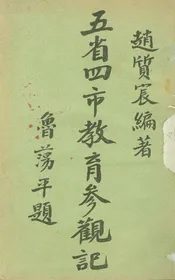 趙質宸編著
五省四市教育參觀記
魯蕩平題